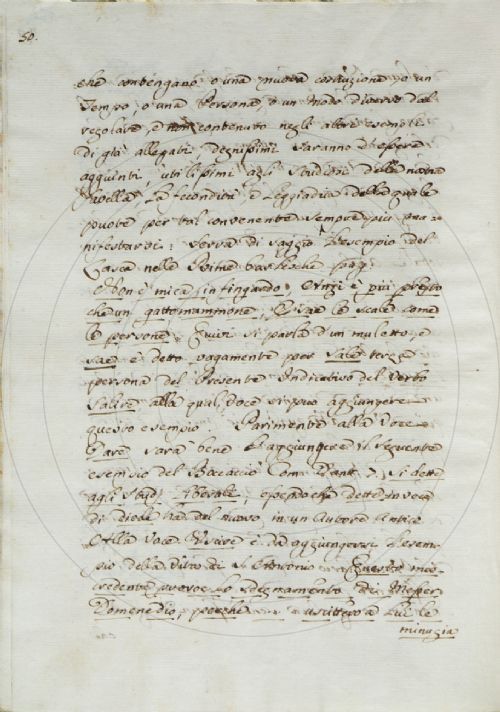 50.
che contengano o una nuova costruzione, o un
Tempo, o una Persona, o un Modo diverso dal
regolare, e non contenuto negli altri esempi
di già allegati degnissimi saranno d'essere
aggiunti, utilissimi agli Studiosi della nostra
favella, la fecondità, e leggiadria della quale
puote per tal convenente sempre più ma=
nifestarsi: Serva di saggio l'esempio del
Lasca nelle Rime burlesche
Ebon è mica infingardo, Anzi è più presto
che un gattomammone, E sae le scale come
le persone. Quivi si parla d'un muletto, e
sae è detto vagamente per Sale terza
persona del Presente Indicativo del Verbo
Salire alla qual Voce si può aggiungere
questo esempio. Parimente alla Voce
Dare sarà bene l'aggiungere il seguente
esempio del Boccaccio Com. Dant. 7. Si dette
agli Studj liberali, essendochè dette in vece
di diede ha del nuovo in un Autore antico
Alla Voce Uscire è da aggiungersi l'esem=
pio della Vita di S. Antonio Questo mis
credente provoc lo sdegnamento di Messer
Domenedio, perchè uscitegli a lui le
minugia